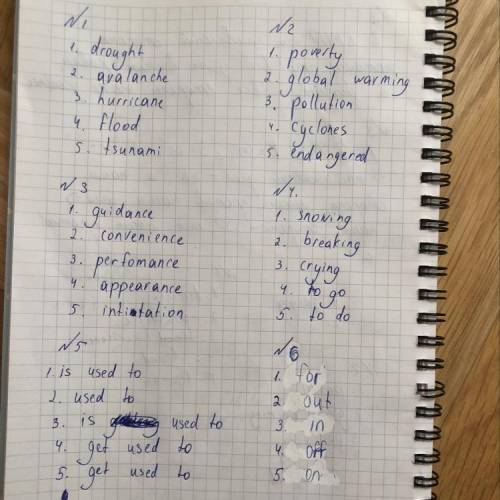 N1
1. drought
2. avalanche
3. hurricane
4. flood
5. tsunami
N2
1. poverty
2. global warming
3. pollution
4. cyclones
5. endangered
N3
1. guidance
2. convenience
3. perfomance
4. appearance
5. intintation
N4.
1. snowing
2. breaking
3. crying
4. to go
5. to do
N5
1. is used to
2. used to
3. is used to
4. get used to
5. get used to
N6
1. for
2 out
3. in
4. off
5. on